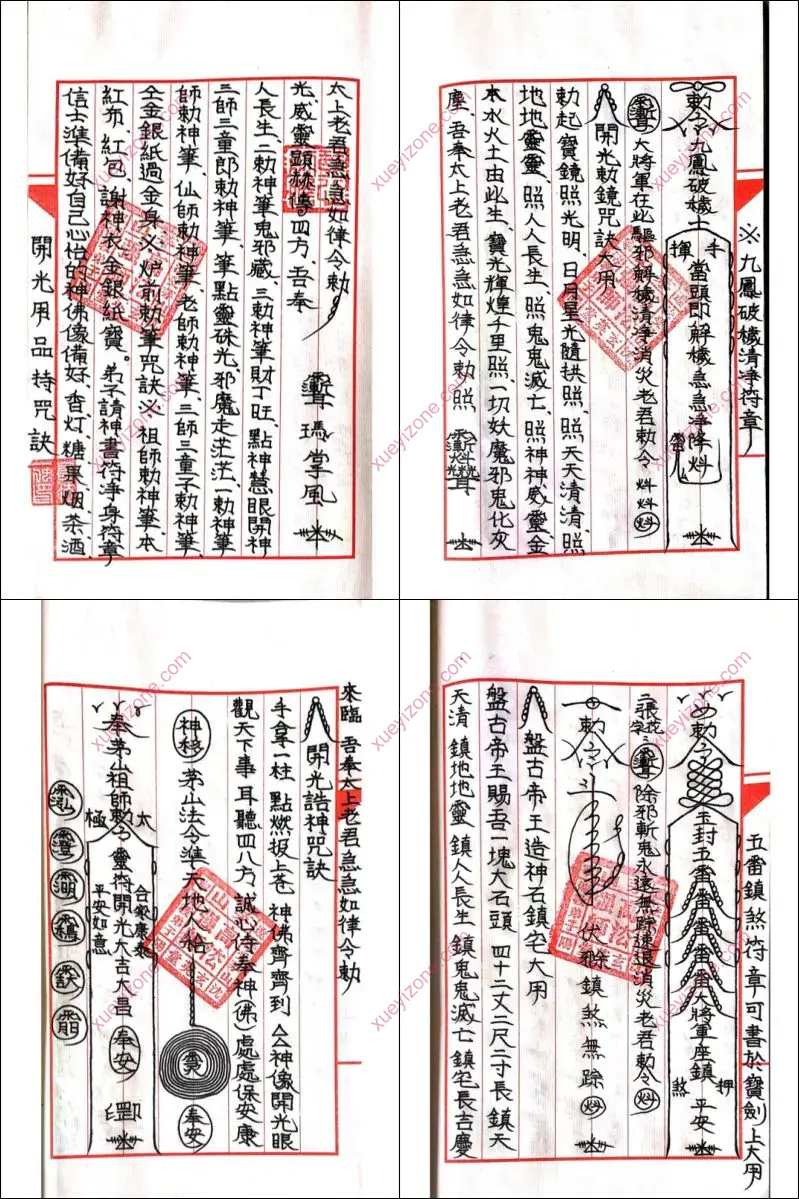 太上老君急急如律令勅
光、威靈顯赫傳四方、吾奉
瑪掌風
人長生、二勅神筆鬼邪藏、三勅神筆財丁旺、點神慧眼開神
三師三童郎勅神筆、筆點靈硃光、邪魔走茫茫一勅神筆
師勅神筆、仙師勅神筆、老師勅神筆、三師三童子勅神筆、
全金銀紙過金身※炉前勅筆咒訣※祖師勅神筆、本
紅布、紅包、謝神衣金銀紙寶。弟子請神書符淨身符章
信士準備好自己心怡的神佛像備好、香灯、糖果烟茶酒、
開光用品持咒訣
※九鳳破穢清淨符章
勅令九鳳破穢士
手揮
當頭即解穢急急淨降炓
大將軍在此驅邪解穢清淨消災老君勅令炓炓炓
開光勅鏡咒訣大用
勅起寶鏡照光明、日月星光隨拱照、照天天清清、照
地地靈靈、照人人長生、照鬼鬼滅亡、照神神威靈金
木水火土由此生、寶光輝煌千里照、一切妖魔邪鬼化灰
塵、吾奉太上老君急急如律令勅照
來臨 吾奉太上老君急急如律令勅
開光誥神咒訣
手拿一柱 點燃扳上苍 神佛齊齊到 厶神像開光眼
觀天下事 耳聽四八方、誠心侍奉神(佛)處處保安康
茅山法令準天地人給
奉安
奉茅山祖師勅令靈符開光大吉大昌 奉安
太極
合家康泰
平安如意
五番鎮煞符章可書於寶劍上大用
勅令
玉封五番番番番番大將軍座鎮 平安
押煞
除邪斬鬼永遠無踪速退消災老君勅令炓
勅令
伏 鎮煞無踪炓
盤古帝王造神石鎮宅大用
盤古帝王賜吾一塊大石頭 四十二丈二尺二寸長 鎮天
天清 鎮地地靈 鎮人人長生 鎮鬼鬼滅亡 鎮宅長吉慶
xueyizone.com
xueyizone.com
xueyizone.com
xueyizone.com